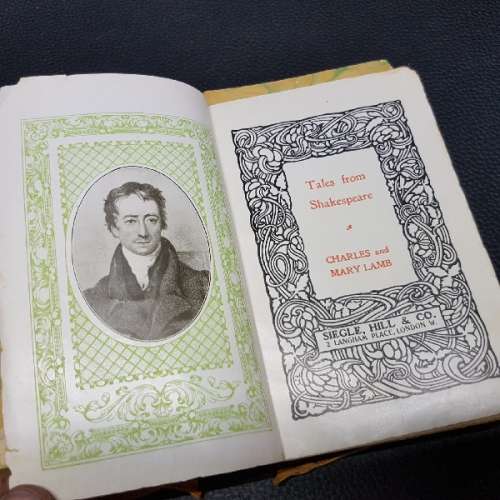 Tales from
Shakespeare
CHARLES and
MARY LAMB
SIEGLE, HILL & CO.
2 LANGHAM PLACE, LONDON W.